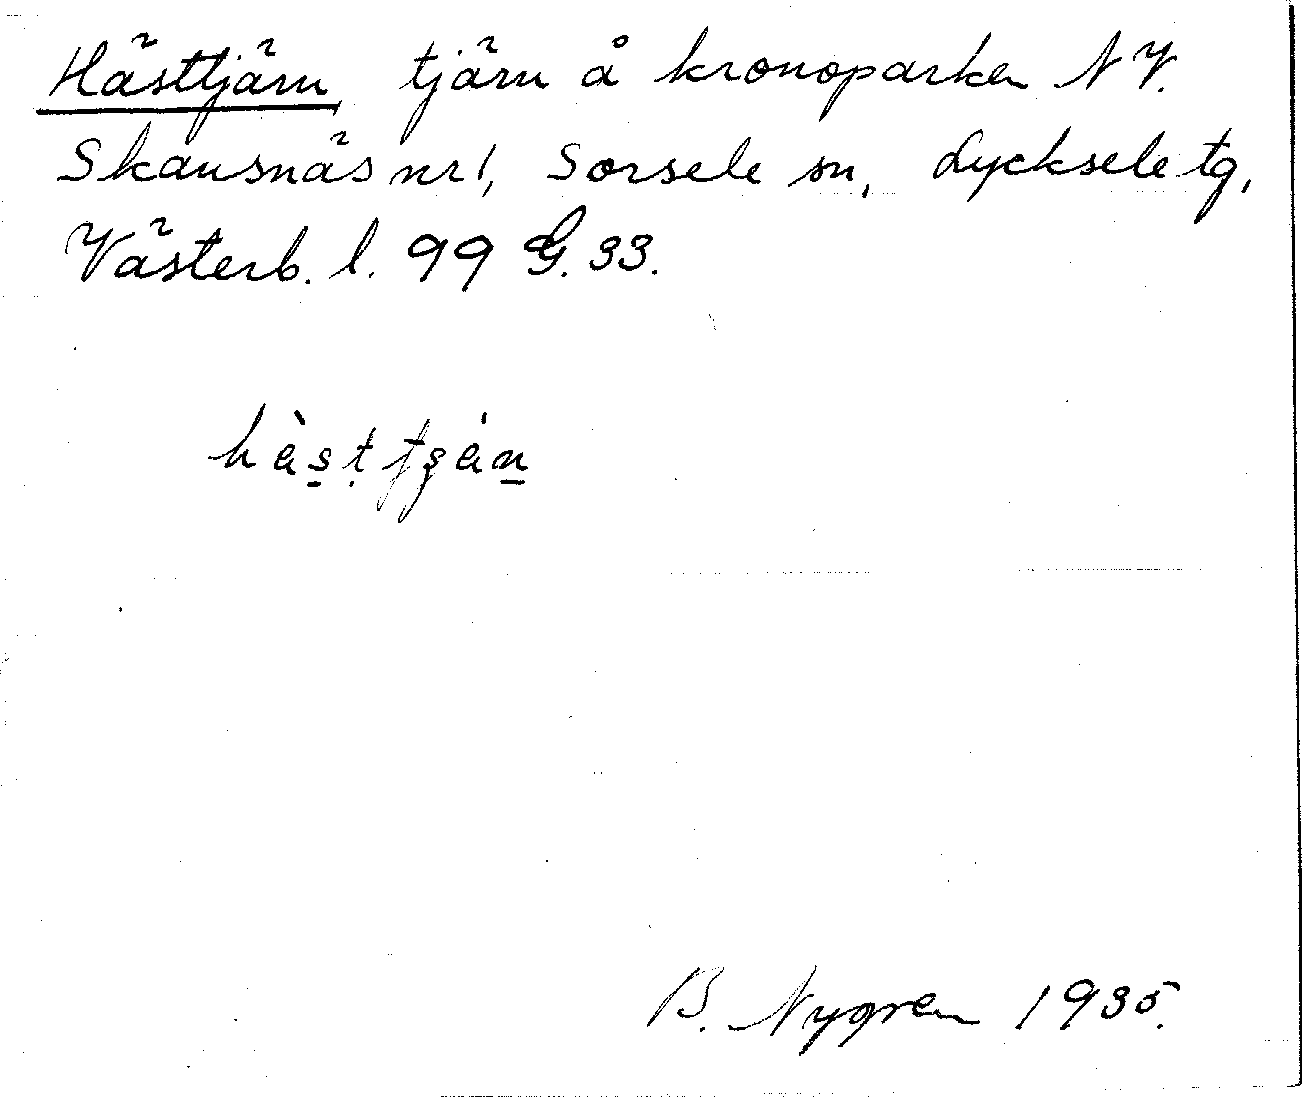 Hästtjärn tjärn å kronoparken N V.
Skansnäs nr 1, Sorsele sn, Lycksele tg,
Västerb. l. 99 G. 33.
hàs̱ṭ tʂáṉ
B. Nygren 1935.